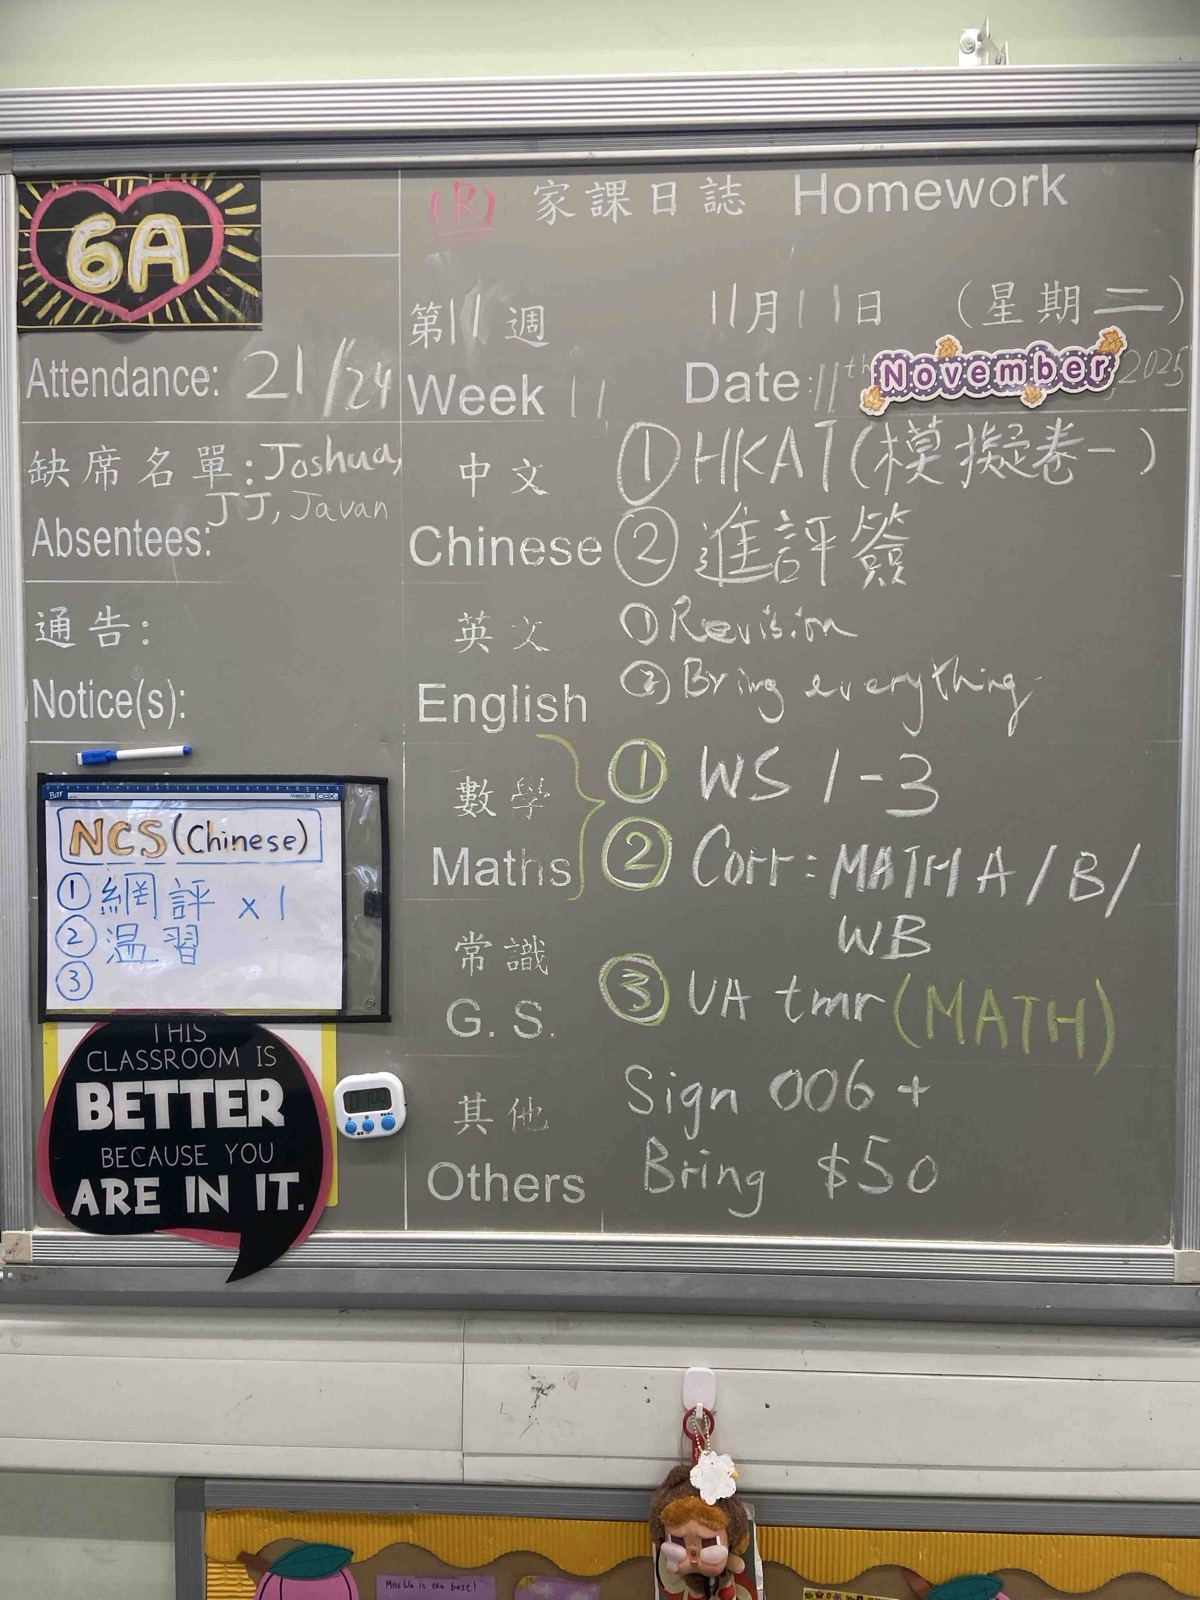 6A
(R) 家課日誌 Homework
第11週 11月11日 (星期二)
Week 11 Date: 11th November, 2025
Attendance: 21/24
缺席名單: Joshua,
JJ, Javan
Absentees:
通告:
Notice(s):
中文 ① HKAT (模擬卷一)
Chinese ② 進評簽
英文 ① Revision
English ② Bring everything.
數學 ① WS 1-3
Maths ② Corr: MATH A / B /
WB
常識
G. S. ③ UA tmr (MATH)
其他 Sign 006 +
Others Bring $50
NCS (Chinese)
① 網評 x 1
② 温習
③
THIS
CLASSROOM IS
BETTER
BECAUSE YOU
ARE IN IT.
Miss Wu is the best!